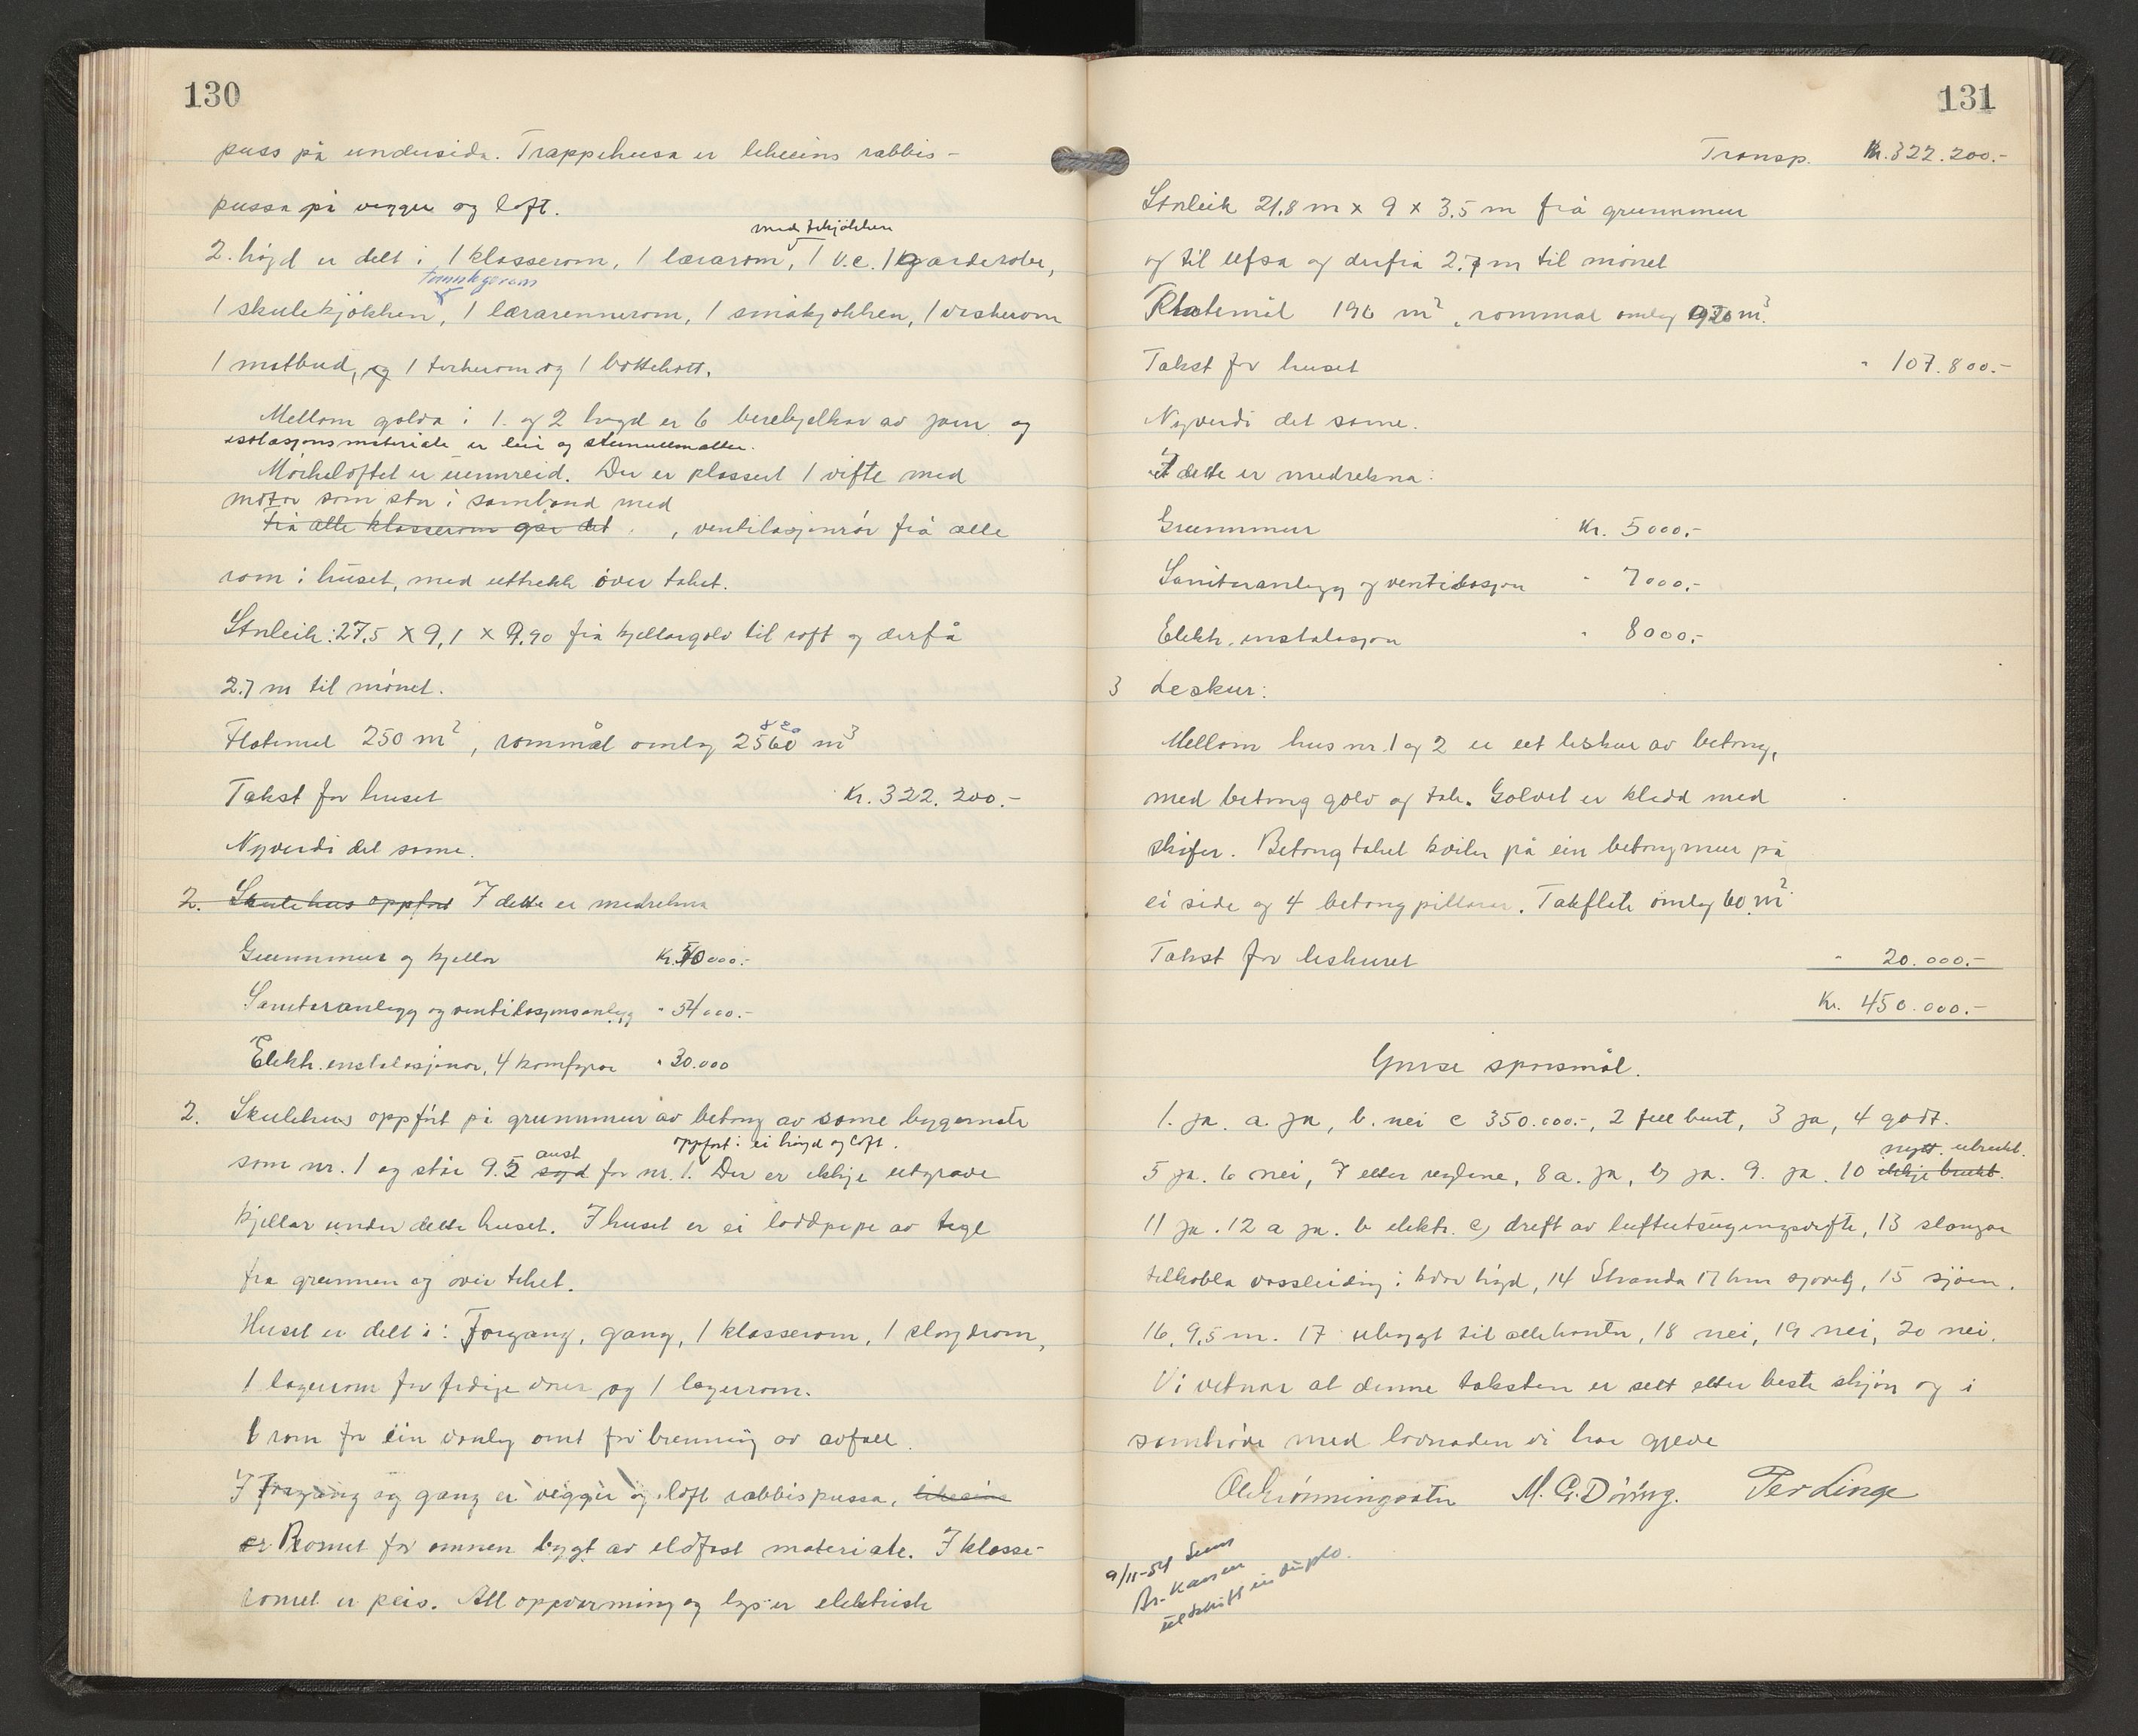 130
puss på undersida. Trappehusa er likeeins rabbis-
pussa på vegger og loft.
med tekjökken
2. högd er delt i 1 klasserom, 1 lærarom, 1 v.c. 1 garderobe,
1 skulekjökken, 1 lærarennerom, 1 småkjökken, 1 vaskerom
1 matbud, og 1 torkerom og 1 bottekott.
Mellom golva i 1. og 2 högd er 6 berebjelkar av jarn og
isolasjonsmateriale er leir og steinullmatter.
Mörkeloftet er uinnreid. Der er plassert 1 vifte med
motor som står i samband med
frå alle klasserom går det , ventilasjonsrör frå alle
rom i huset, med uttrekk över taket.
Storleik: 27,5 x 9,1 x 9,90 frå kjellargolv til roft og derfå
2.7 m til mönet.
Flatemål 250 m², rommål omlag 2560 m³
Takst for huset Kr. 322.200.-
Nyverdi det same.
2. Skulehus oppfört I dette er medrekna
Grunnmur og kjellar Kr. 50000.-
Saniteranlegg og ventilasjonsanlegg " 54000.-
Elektr. instalasjonar, 4 komfyrar " 30.000
2. Skulehus oppfört på grunnmur av betong av same byggemåte
aust oppfört i ei högd og loft.
som nr. 1 og står 9.5 syd for nr. 1. Der er ikkje utgrave
kjellar under dette huset. I huset er ei loddpipe av tegl
fra grunnen og over taket.
Huset er delt i: Forgang, gang, 1 klasserom, 1 slöydrom,
1 lagerrom for ferdige varer og 1 lagerrom.
1 rom for ein vanleg omn for brenning av avfall.
I Forgang og gang er vegger og loft rabbispussa, likeeins
er Romet for omnen bygt av eldfast materiale. I klasse-
romet er peis. All oppvarming og lys er elektrisk
131
Transp. Kr. 322.200.-
Storleik 21,8 m x 9 x 3,5 m frå grunnmur
og til ufsa og derfrå 2.7 m til mönet
Flatemål 196 m², rommål omlag 920 m³.
Takst for huset " 107.800.-
Nyverdi det same.
I dette er medrekna:
Grunnmur Kr. 5000.-
Saniteranlegg og ventilasjon " 7000.-
Elektr. instalasjon " 8000.-
3 Leskur:
Mellom hus nr. 1 og 2 er eit leskur av betong,
med betong golv og tak. Golvet er kledd med
skifer. Betongtaket kviler på ein betongmur på
ei side og 4 betongpillarar. Takflate omlag 60 m².
Takst for leskuret " 20.000.-
Kr. 450.000.-
Ymse spörsmål.
1. ja. a. ja, b. nei c 350.000.-, 2 full bunt, 3 ja, 4 godt.
nytt. ubrukt.
5 ja. 6 nei, 7 etter reglane, 8 a. ja, b) ja. 9. ja. 10 ikkje brukt.
11 ja. 12 a ja. b elektr. c) dreft av luftutsugingsvifte, 13 slangar
tilkobla vassleiding i kvar högd, 14 Stranda 17 km sjöveg, 15 sjöen.
16, 9,5 m. 17 ubygt til alle kanter, 18 nei, 19 nei, 20 nei.
Vi vitnar at denne taksten er sett etter beste skjön og i
samhöve med lovnaden vi har gjeve
M. G. Döving. Per Linge
9/11-54 Sent
Br.kassen
utskrift in duplo.